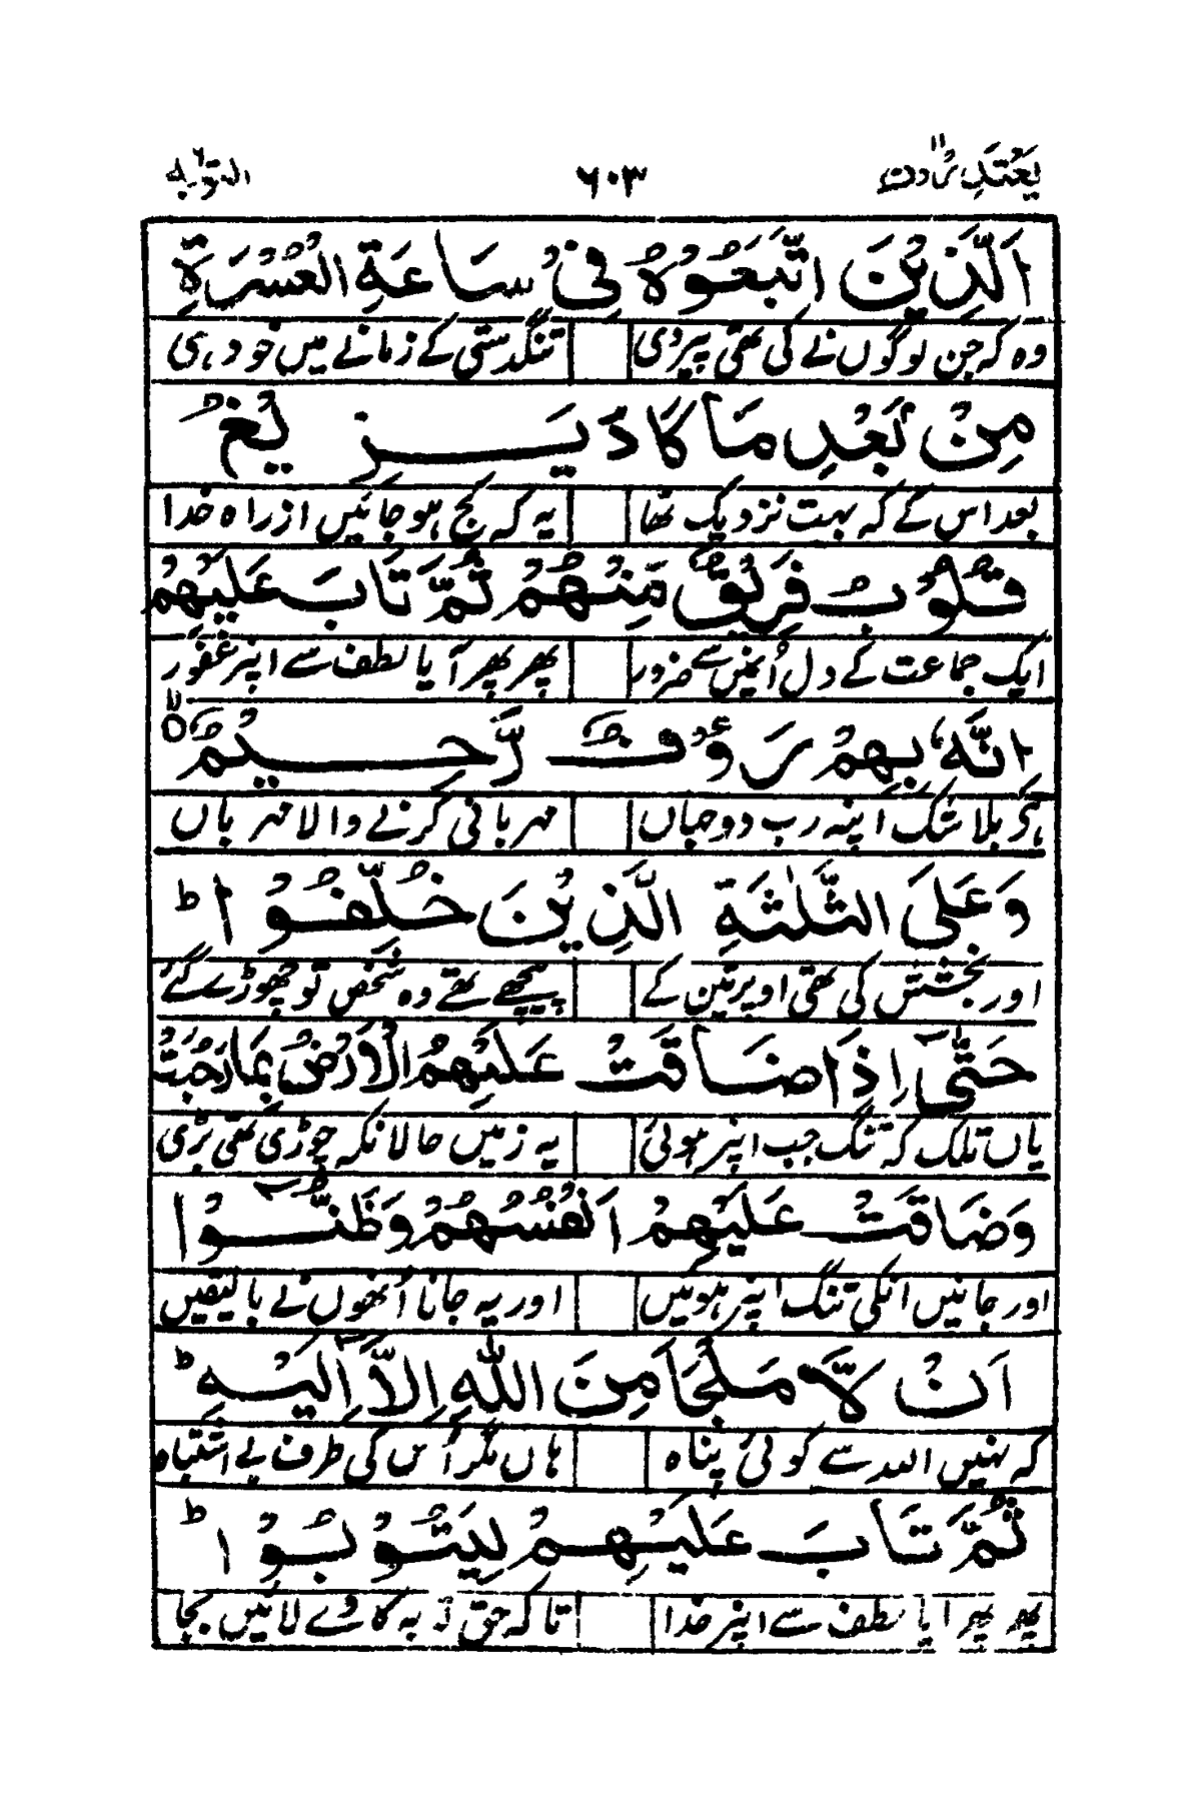 یَعْتَذِرُوْنَ ۱۱ ۶۰۳ التوبة ۹
الَّذِيْنَ اتَّبَعُوْهُ فِيْ سَاعَةِ الْعُسْرَةِ
وہ کہ جن لوگوں نے کی تھی پیروی تنگدستی کے زمانے میں خود ہی
مِنْۢ بَعْدِ مَا كَادَ يَزِيْغُ
بعد اس کے کہ بہت نزدیک تھا یہ کہ کج ہو جائیں از راہ خدا
قُلُوْبُ فَرِيْقٍ مِّنْهُمْ ثُمَّ تَابَ عَلَيْهِمْ
ایک جماعت کے دل اُنمیں سے ضرور پھر پھر آیا لطف سے اپنر غفور
اِنَّهٗ بِهِمْ رَءُوْفٌ رَّحِيْمٌ ۙ
ہیگا بلا شک اپنہ رب دوجہاں مہربانی کرنے والا مہرباں
وَعَلَى الثَّلٰثَةِ الَّذِيْنَ خُلِّفُوْا ؕ
اور بخشش کی تھی اوپر تین کے پیچھے تھے وہ شخص تو چھوڑے گئے
حَتّٰۤى اِذَا ضَاقَتْ عَلَيْهِمُ الْاَرْضُ بِمَا رَحُبَتْ
یاں تلک کہ تنگ جب اپنر ہوئی یہ زمیں حالانکہ چوڑی تھی بڑی
وَضَاقَتْ عَلَيْهِمْ اَنْفُسُهُمْ وَظَنُّوْۤا
اور جانیں انکی تنگ اپنر ہوئیں اور یہ جانا اُنھوں نے بالیقیں
اَنْ لَّا مَلْجَاَ مِنَ اللّٰهِ اِلَّاۤ اِلَيْهِ ؕ
کہ نہیں اللہ سے کوئی پناہ ہاں مگر اُس کی طرف بے اشتباہ
ثُمَّ تَابَ عَلَيْهِمْ لِيَتُوْبُوْا ؕ
پھر پھر آیا لطف سے اپنر خدا تا کہ حق توبہ کا وے لائیں بجا